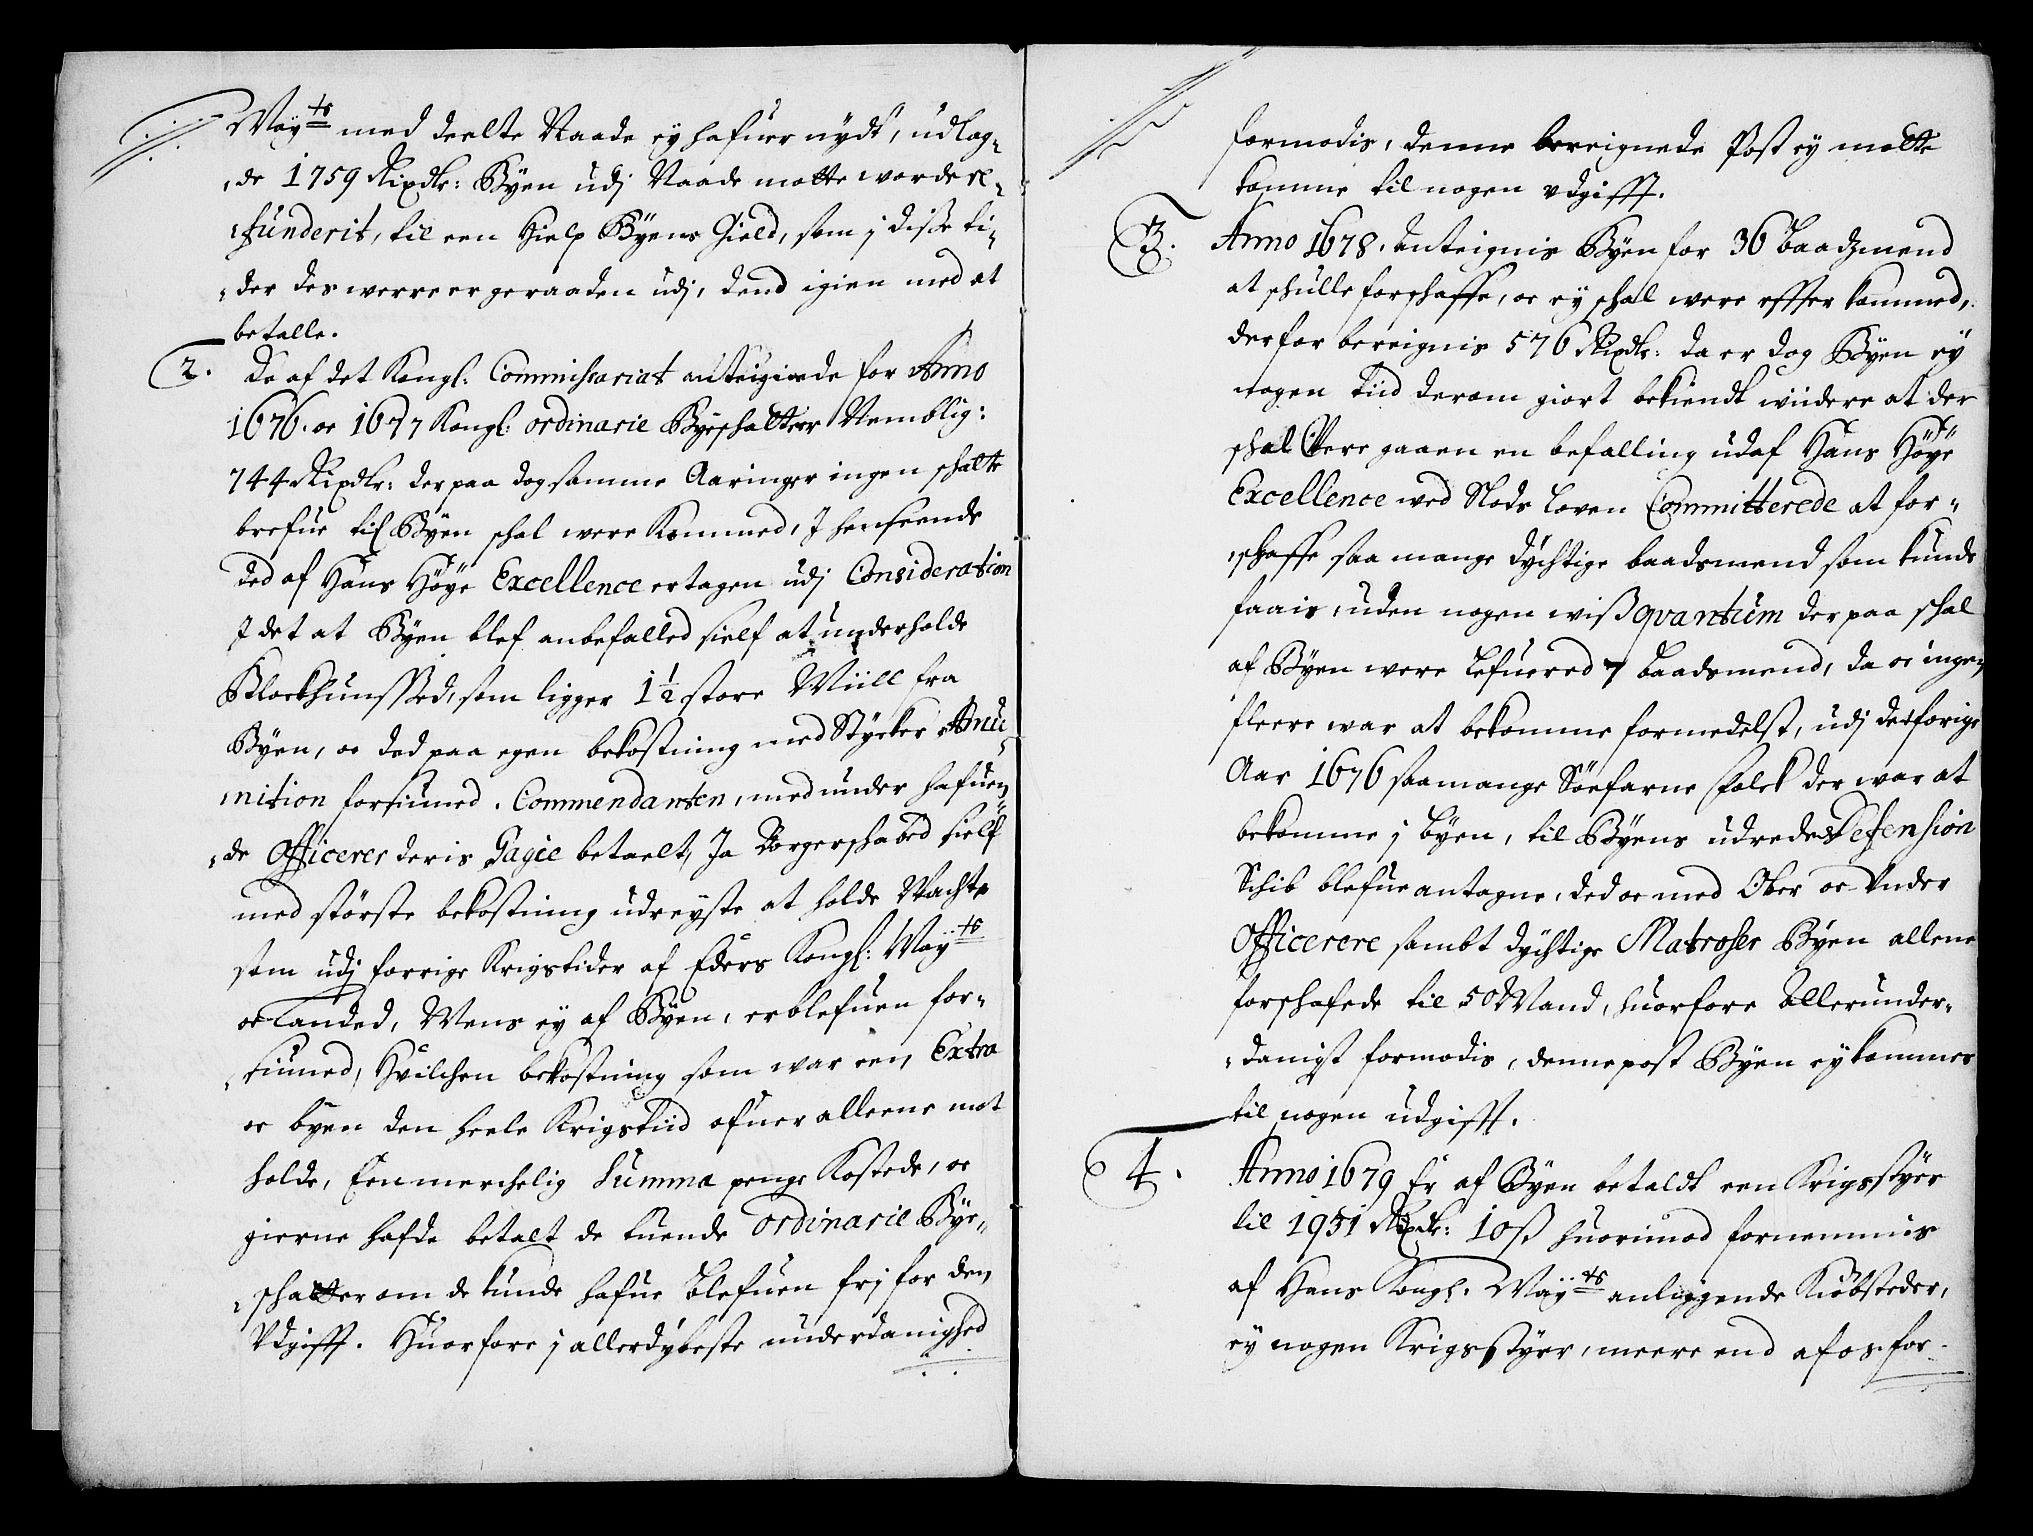 May^ts med deelte Naade ey hafuer nydt, udlag-
de 1759 Rixdlr: Byen udj Naade motte worde re-
funderit, til een Hielp Byens Gield, som j disse ti-
der des werre er geraaden udj, dend igien med at
betalle.
2. De af det Kongl: Commissariat anteignede for Anno
1676. oc 1677 Kongl: ordinarie Byeschatter Nemblig:
744 Rixdlr: der paa dog samme Aaringer ingen schatte
brefue til Byen schal were Kommed, J henseende
ded af Hans Höye Excellence er tagen udj Consideration
J det at Byen blef anbefalled sielf at underholde
Blockhunssed, som ligger 1½ store Miill fra
Byen, oc ded paa egen bekostning med Stycker Amu-
nition forsiuned. Commendanten, med under hafuen-
de Officerer deris Gagie betaelt, Ja Borgerschabed sielf
med störste bekostning udreyste at holde Wachte
som udj forrige Krigstider af Eders Kongl: May^ts
oc Landed, Mens ey af Byen, er blefuen for-
siuned, Hvilchen bekostning som war een Extra
oc byen den heele Krigstiid ofuer alleene mot
holde, Een merchelig Summa penge Kostede, oc
gierne hafde betalt de tuende Ordinarie Bye-
schatter om de kunde hafue blefuen frj for den
Vdgifft. Huorfore j allerdybeste underdanighed
formodis, denne bereignede Post ey motte
komme til nogen vdgifft.
3. Anno 1678. Anteignis Byen for 36 Baadzmend
at schulle forschaffe, oc ey schal were effter kommed,
derfor bereignis 576 Rixdlr: da er dog Byen ey
nogen tiid derom giort bekiendt wiidere at der
schal Were gaaen en befalling ud af Hans Höye
Excellence wed Slods Loven Committerede at for-
schaffe saa mange dychtige baadsmend som kunde
faais, uden nogen wiß qvantum der paa schal
af Byen were Lefuered 7 baadsmend, da oc ingen
fleere war at bekomme formedelst, udj det forige
Aar 1676 saa mange Söefarne Folck der war at
bekomme j byen, til Byens udredes Defension
Schib blefue antagne, ded oc med Ober oc Vnder
Officerere sambt dychtige Matroser Byen allene
forschafede til 50 Mand, huorfore Allerunder-
danigst formodis, denne post Byen ey kommer
til nogen udgifft.
4. Anno 1679 Er af Byen betaldt een Krigsstyer
til 1951 Rixdlr: 10 ß huorimod fornemmis
af Hans Kongl: May^ts anliggende Kiöbsteder,
ey nogen Krigsstyer, meere end af os for-